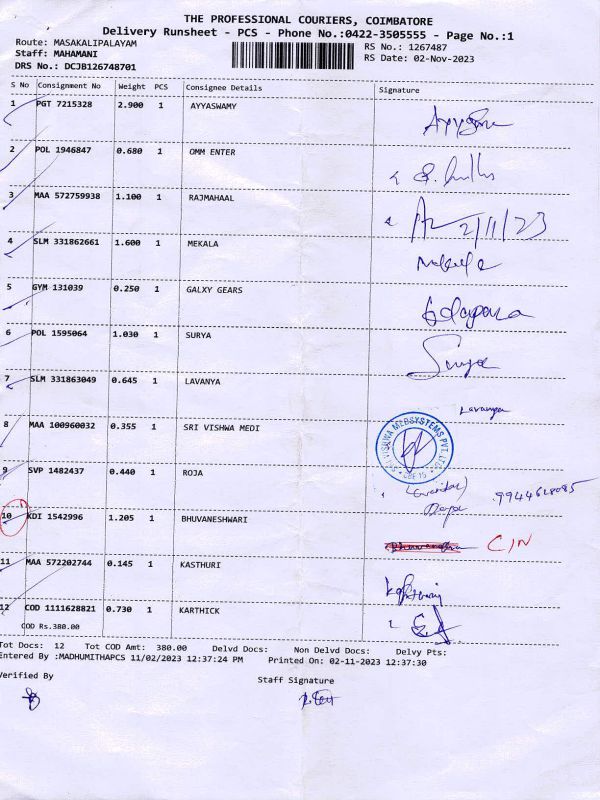 THE PROFESSIONAL COURIERS, COIMBATORE
Delivery Runsheet - PCS - Phone No.:0422-3505555 - Page No.:1
Route: MASAKALIPALAYAM
RS No.: 1267487
Staff: MAHAMANI
RS Date: 02-Nov-2023
DRS No.: DCJB126748701
S No Consignment No Weight PCS Consignee Details Signature
1 PGT 7215328 2.900 1 AYYASWAMY
2 POL 1946847 0.680 1 OMM ENTER
3 MAA 572759938 1.100 1 RAJMAHAAL 2/11/23
4 SLM 331862661 1.600 1 MEKALA
5 GYM 131039 0.250 1 GALXY GEARS
6 POL 1595064 1.030 1 SURYA Surya
7 SLM 331863049 0.645 1 LAVANYA Lavanya
8 MAA 100960032 0.355 1 SRI VISHWA MEDI
VISHWA MEDSYSTEMS PVT. LTD.
CBE 15
9 SVP 1482437 0.440 1 ROJA 9944628085
10 KDI 1542996 1.205 1 BHUVANESHWARI C/N
11 MAA 572202744 0.145 1 KASTHURI
12 COD 1111628821 0.730 1 KARTHICK
COD Rs.380.00
Tot Docs: 12 Tot COD Amt: 380.00 Delvd Docs: Non Delvd Docs: Delvy Pts:
Entered By :MADHUMITHAPCS 11/02/2023 12:37:24 PM Printed On: 02-11-2023 12:37:30
Verified By
Staff Signature